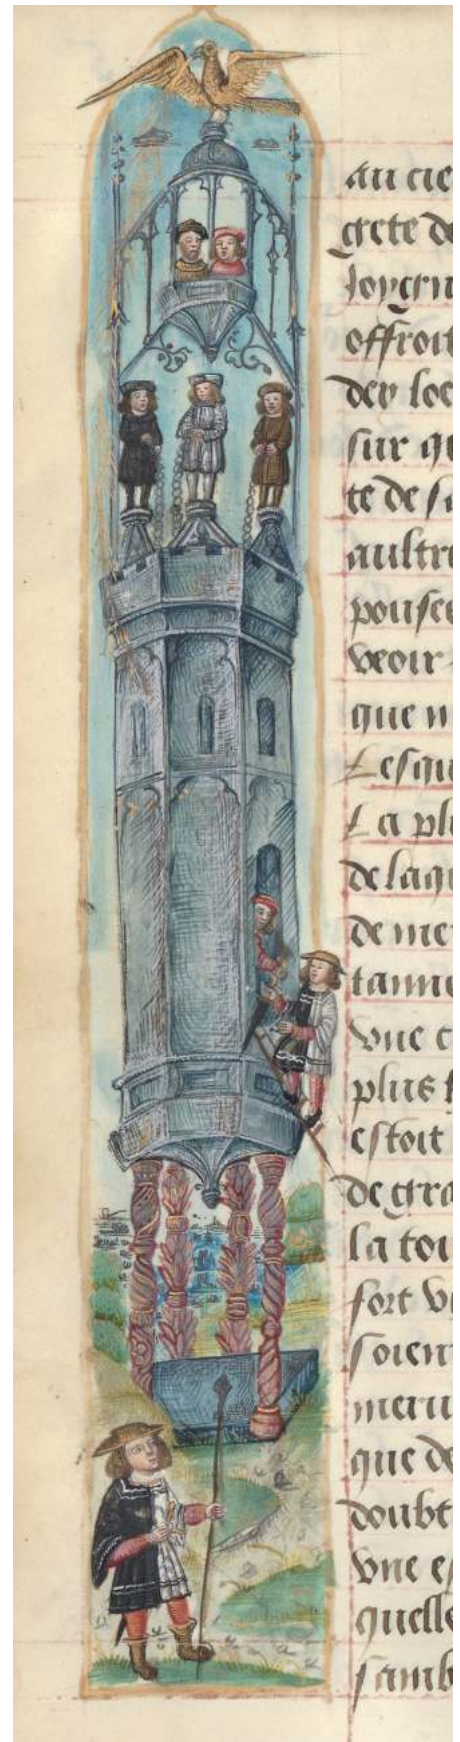 au cie
grete de
Joyeru
offroit
dep loe
sur qu
te de sa
aultre
pouset
veoir
que n
Lesqu
La plu
de laqu
de mer
tanne
vne c
plus f
estoit
de gra
la toi
fort vi
soien
meru
que de
doubt
vne es
quelle
samb